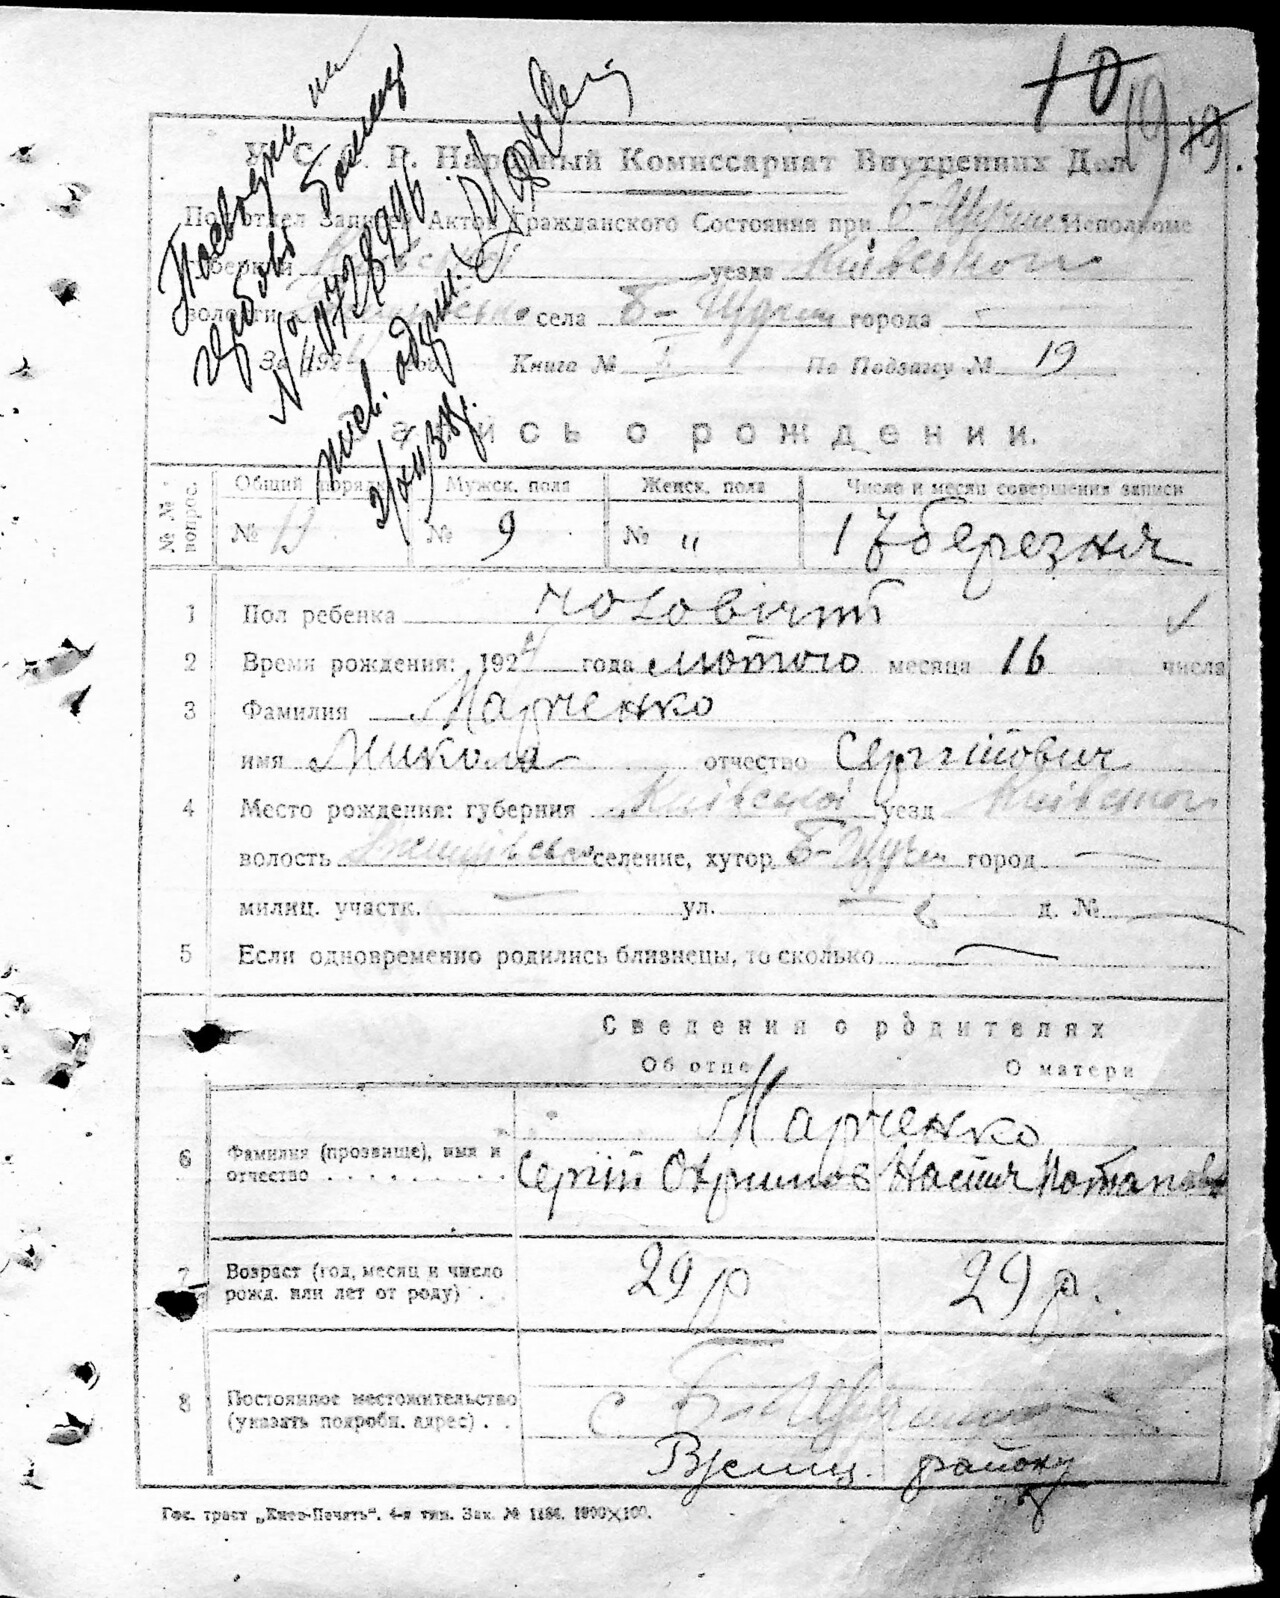 10
19
У. С. Р. Народный Комиссариат Внутренних Дел.
Подотдел Записей Актов Гражданского Состояния при Б-Щучин Исполкоме
губернии Київської уезда Київського
волости села Б-Щучин города —
За 1924 год Книга № По Подзагсу № 19
Запись о рождении.
№№ вопрос. Общий порядк. Мужск. пола Женск. пола Число и месяц совершения записи
№ № 9 № „ 17 березня
1 Пол ребенка чоловічий
2 Время рождения: 1924 года лютого месяца 16 числа
3 Фамилия Марченко
имя Микола отчество Сергійович
4 Место рождения: губерния Київської уезд Київського
волость селение, хутор Б-Щучин город —
милиц. участк. — ул. — д. № —
5 Если одновременно родились близнецы, то сколько —
Сведения о родителях
Об отце О матери
Марченко
6 Фамилия (прозвище), имя и
отчество . . . . . . . . . Сергій Охримов Настя Потапов
7 Возраст (год, месяц и число
рожд. или лет от роду) . . 29 р 29 р.
8 Постоянное местожительство
(указать подробн. адрес) . . с Б-Щучин
Ржищ. району
Гос. трест „Киев-Печать“. 4-я тип. Зак. № 1184. 1000×100.